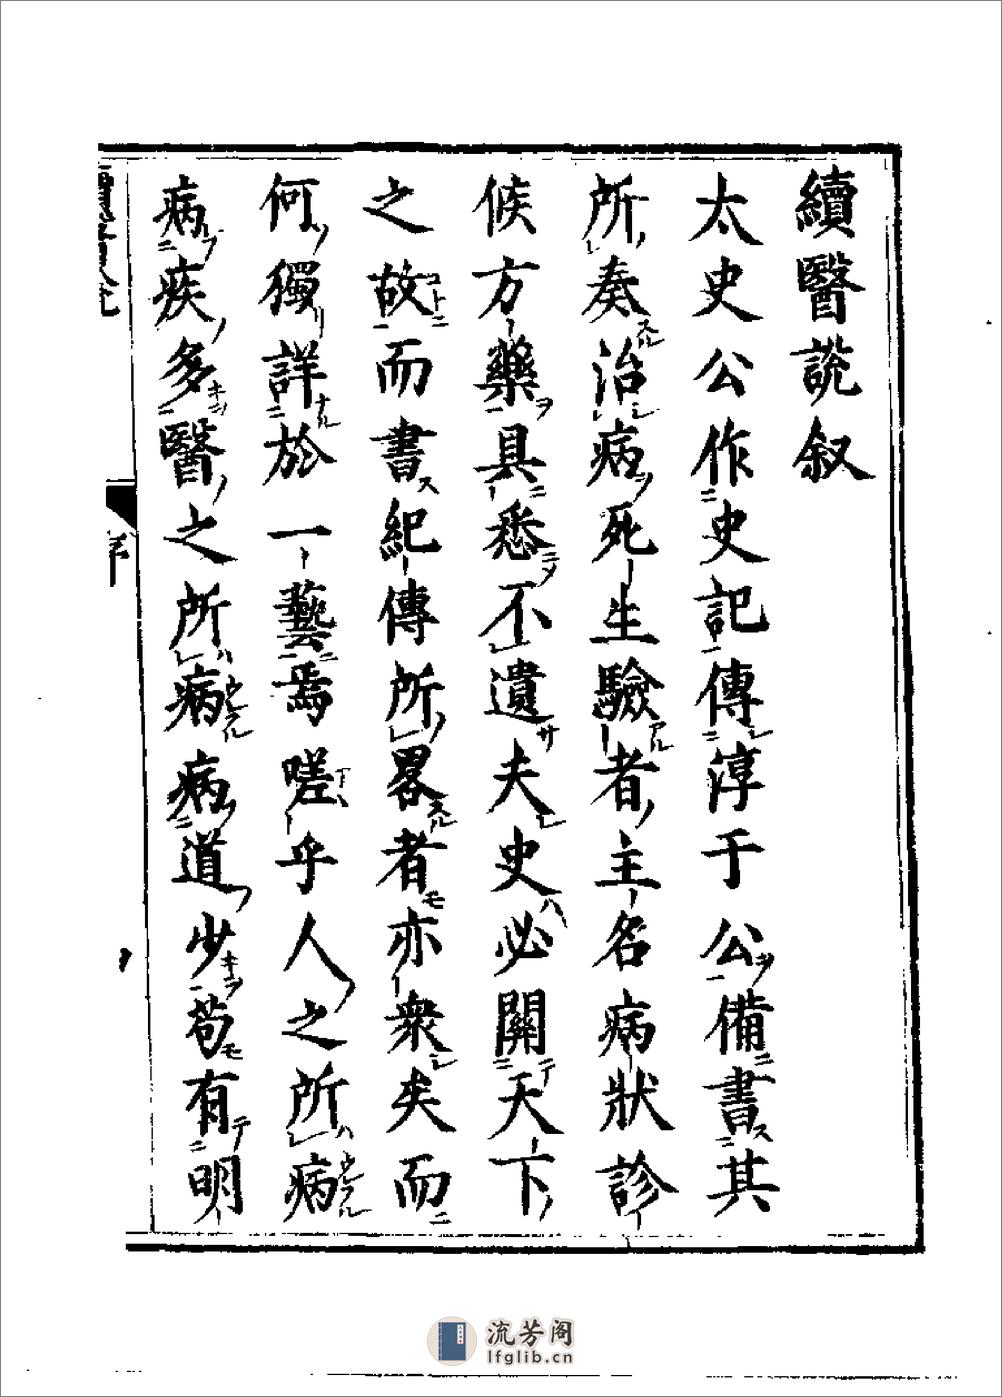 續醫説叙
太史公作史記傳淳于公備書其
所奏治病死生驗者主名病狀診
候方藥具悉不遺夫史必關天下
之故而書紀傳所畧者亦衆矣而
何獨詳於一藝焉嗟乎人之所病
病疾多醫之所病病道少苟有明
流芳阁
lfglib.cn